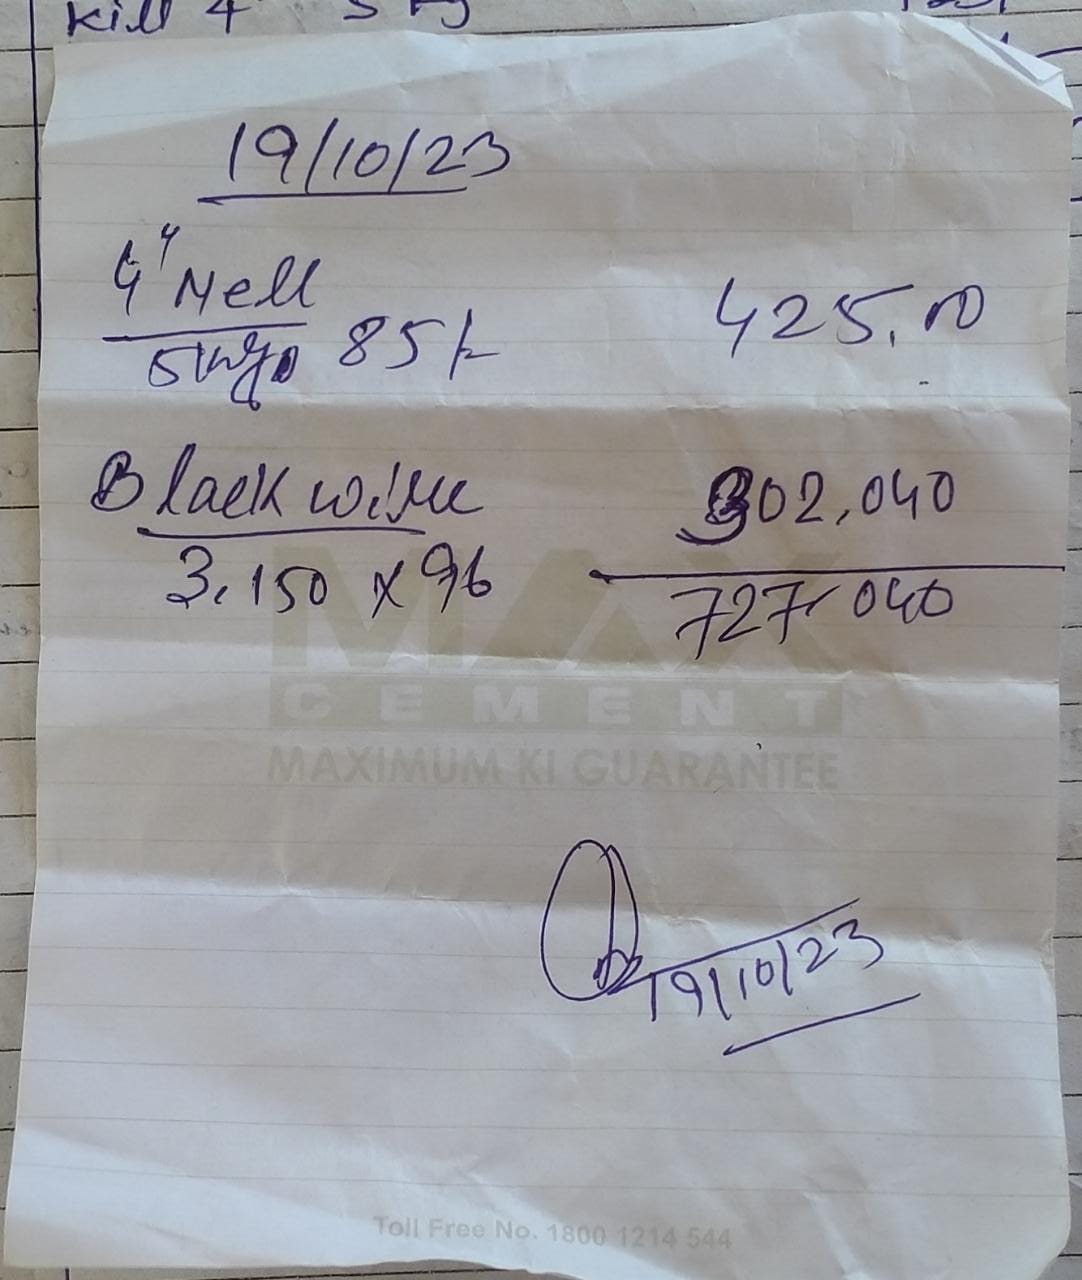 Kill 4 5 kg
19/10/23
4" Nell 425.00
5 kgs 85/-
Black wire 302.040
3.150 x 96 727.040
MAX
CEMENT
MAXIMUM KI GUARANTEE
19/10/23
Toll Free No. 1800 1214 544